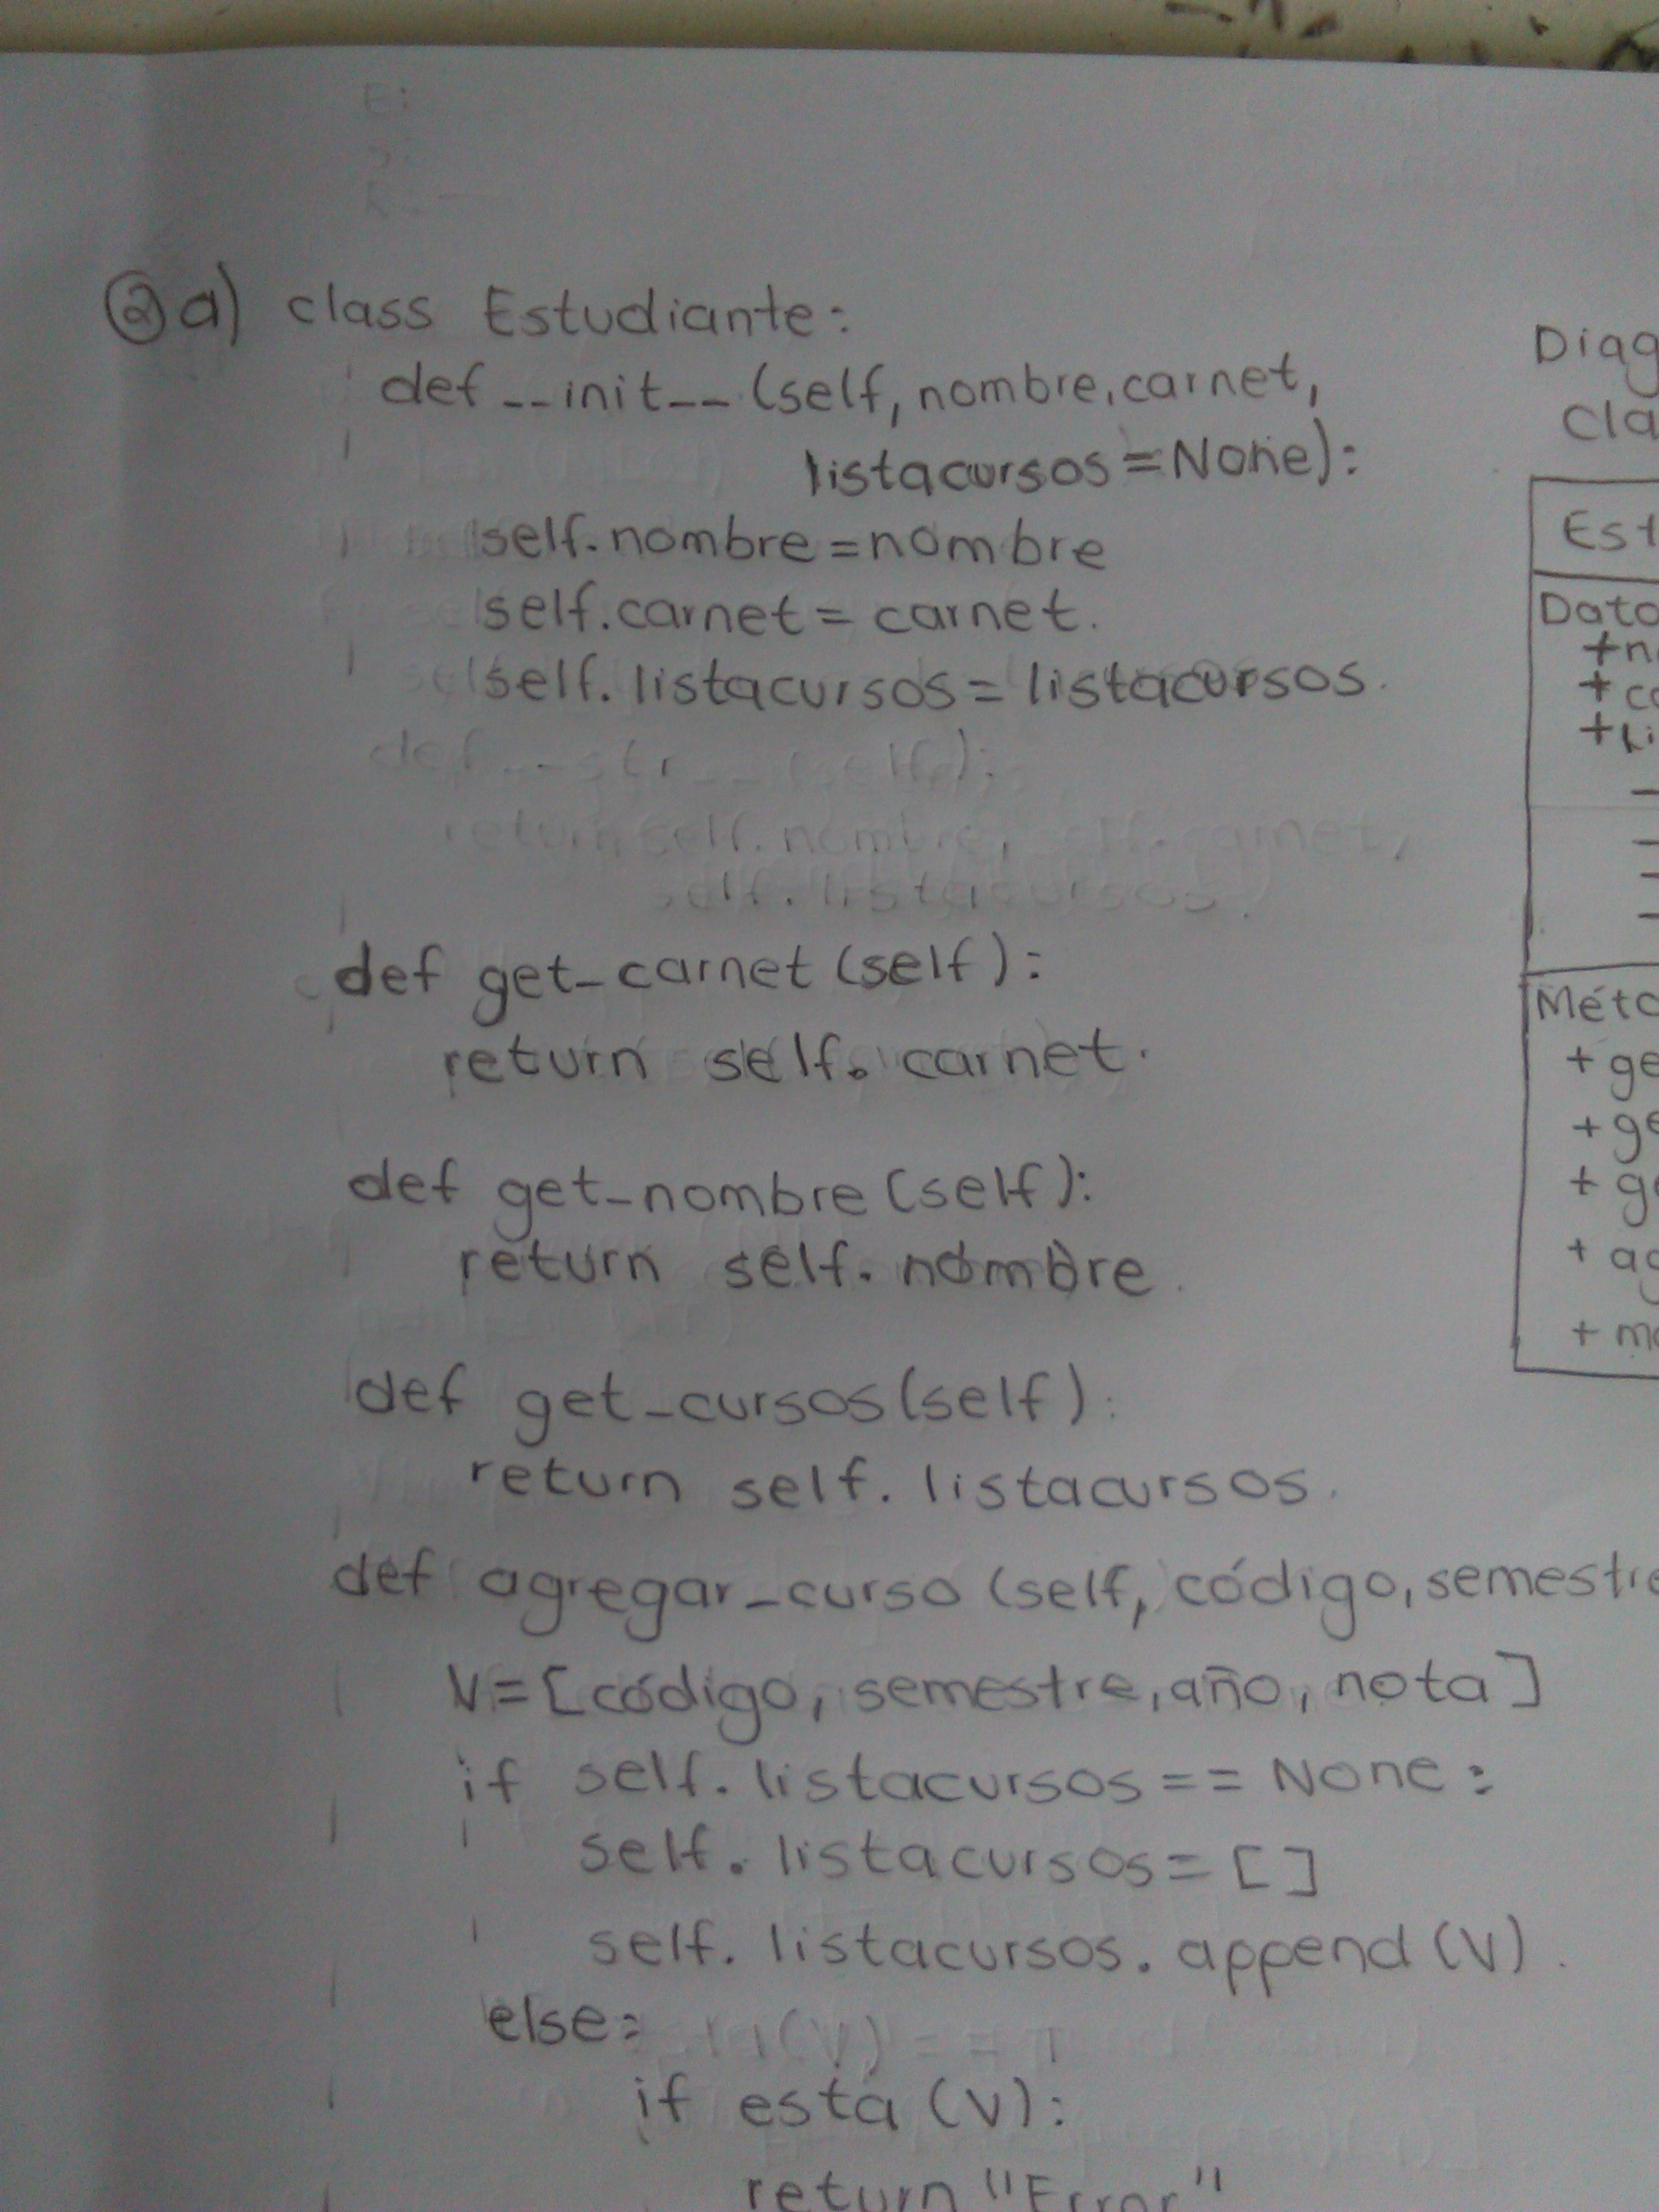 2 a) class Estudiante:
def __init__ (self, nombre, carnet,
listacursos = None):
self.nombre = nombre
self.carnet = carnet.
self.listacursos = listacursos.
def __str__ (self):
return self.nombre, self.carnet,
self.listacursos.
def get_carnet (self):
return self.carnet.
def get_nombre (self):
return self.nombre.
def get_cursos (self):
return self.listacursos.
def agregar_curso (self, código, semestre
V = [código, semestre, año, nota]
if self.listacursos == None:
self.listacursos = [ ]
self.listacursos.append (V).
else:
if está (V):
return "Error"
Diag
Cla
Est
Dato
+ n
+ c
+ Li
Méto
+ ge
+ ge
+ ge
+ ag
+ mo